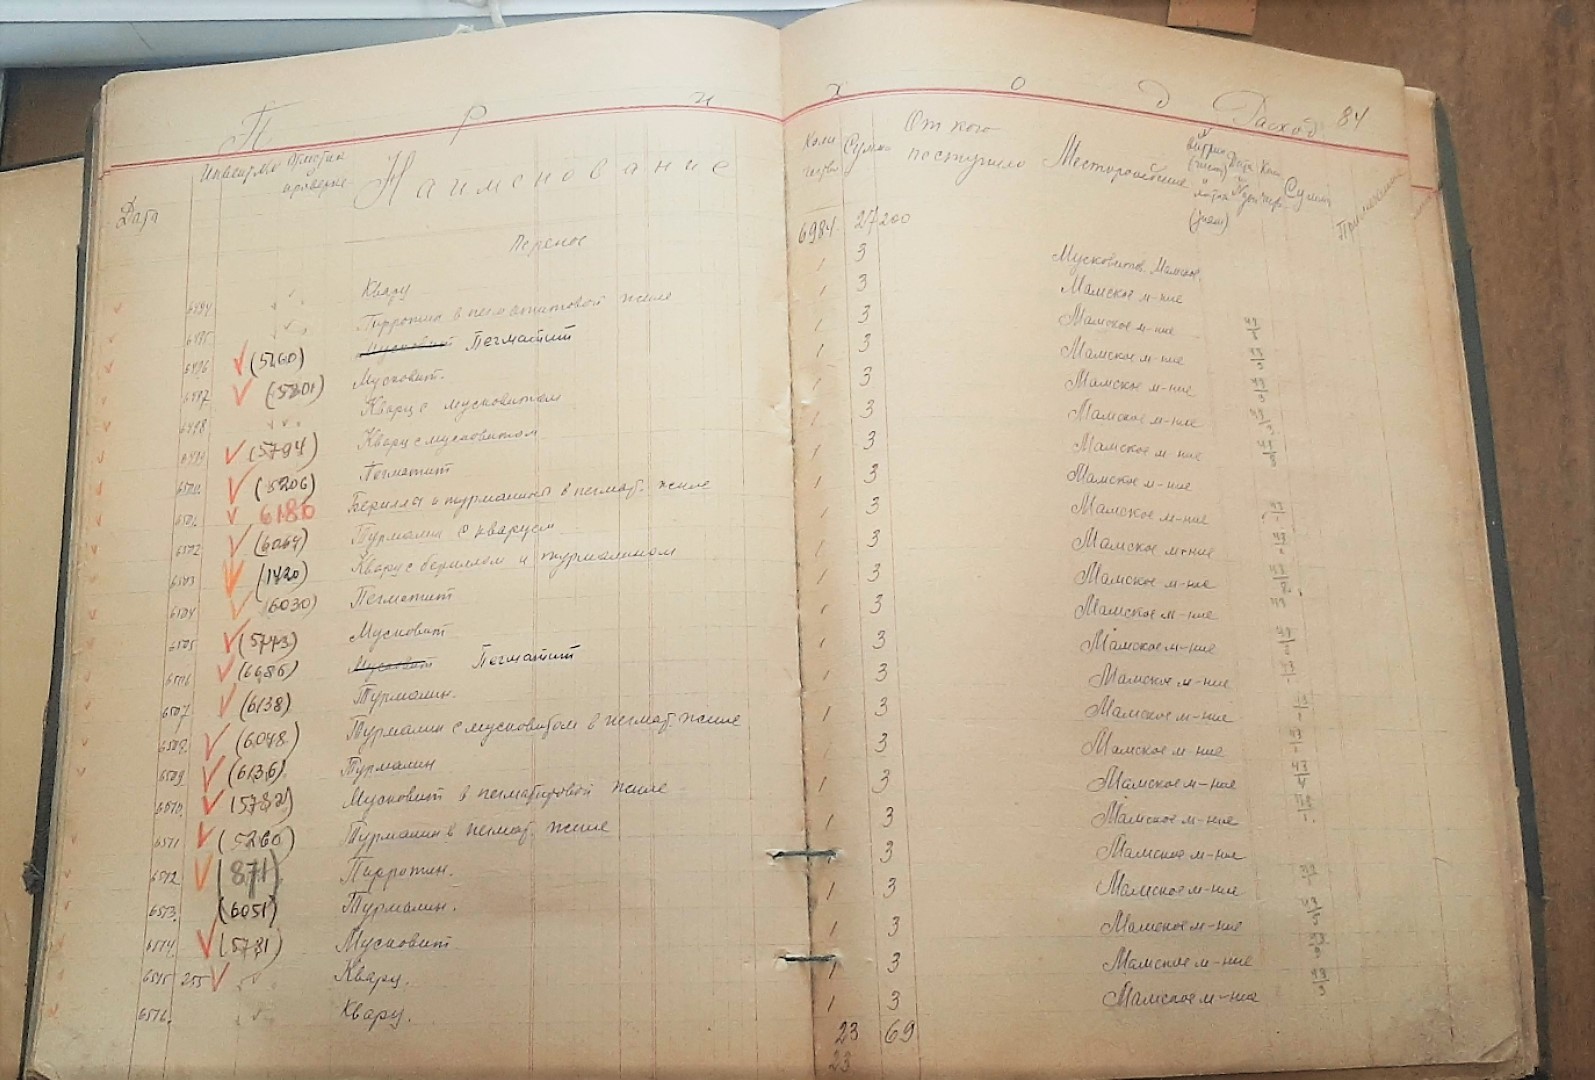 П р и х о д Расход 84
Дата Инвентар Отметки проверке Наименование Коли чество Сумма От кого поступило Месторождение Сумма Примечание
Перенос 6984 27200
6494 Кварц 1 3 Мусковитов. Мамское
6495 Пирротин в пегматитовой жиле 1 3 Мамское м-ние
6496 (5260) Мусковит Пегматит 1 3 Мамское м-ние
6497 (5801) Мусковит. 1 3 Мамское м-ние
6498 Кварц с мусковитом 1 3 Мамское м-ние
6499 (5794) Кварц с мусковитом 1 3 Мамское м-ние
6500 (5206) Пегматит 1 3 Мамское м-ние
6501. 6180 Бериллы и турмалины в пегмат. жиле 1 3 Мамское м-ние
6502 (6064) Турмалин с кварцем 1 3 Мамское м-ние
6503 (1420) Кварц с бериллом и турмалином 1 3 Мамское м-ние
6504 (6030) Пегматит 1 3 Мамское м-ние
6505 (5773) Мусковит 1 3 Мамское м-ние
6506 (6686) Мусковит Пегматит 1 3 Мамское м-ние
6507 (6138) Турмалин. 1 3 Мамское м-ние
6508. (6048) Турмалин с мусковитом в пегмат. жиле 1 3 Мамское м-ние
6509 (6136) Турмалин 1 3 Мамское м-ние
6510. (5782) Мусковит в пегматитовой жиле 1 3 Мамское м-ние
6511 (5260) Турмалин в пегмат. жиле 1 3 Мамское м-ние
6512 (871) Пирротин. 1 3 Мамское м-ние
6513. (6051) Турмалин. 1 3 Мамское м-ние
6514. (5781) Мусковит 1 3 Мамское м-ние
6515 255 Кварц. 1 3 Мамское м-ние
6516. Кварц. 1 3 Мамское м-ние
23 69
23